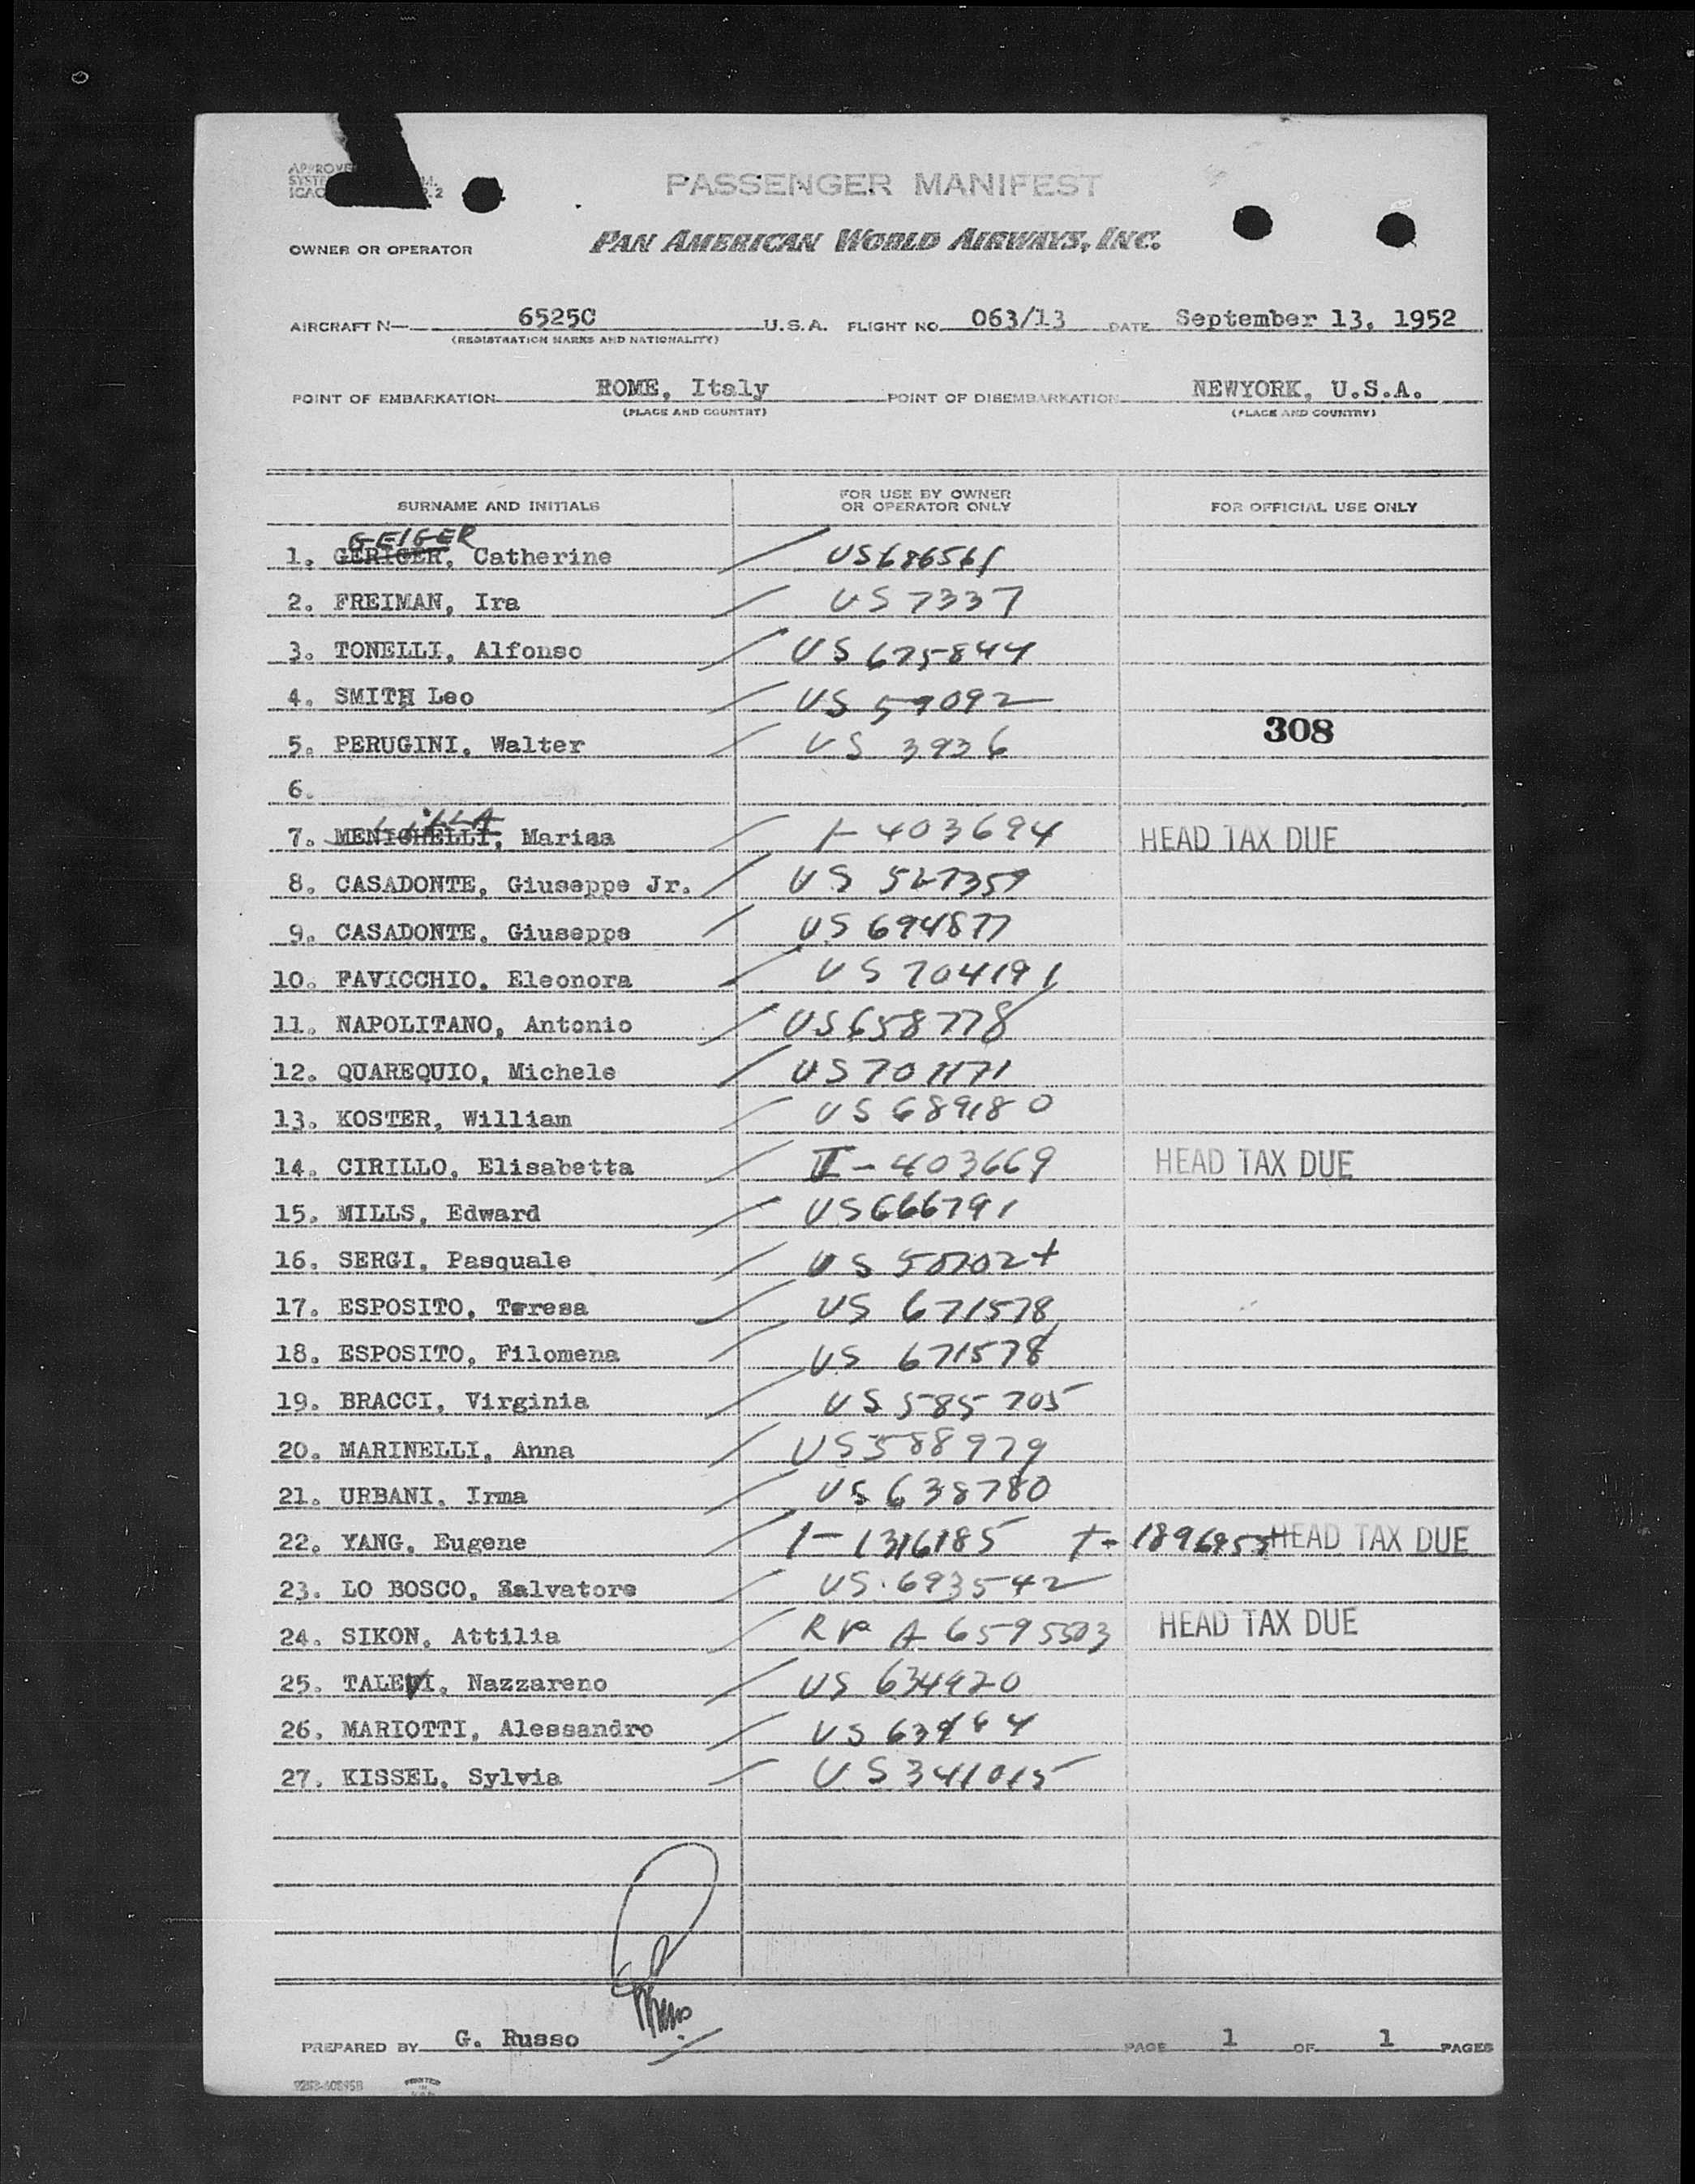 PASSENGER MANIFEST
OWNER OR OPERATOR PAN AMERICAN WORLD AIRWAYS, INC.
AIRCRAFT N— 6525C U.S.A. FLIGHT NO. 063/13 DATE September 13, 1952
(REGISTRATION MARKS AND NATIONALITY)
POINT OF EMBARKATION ROME, Italy POINT OF DISEMBARKATION NEWYORK, U.S.A.
(PLACE AND COUNTRY) (PLACE AND COUNTRY)
SURNAME AND INITIALS FOR USE BY OWNER OR OPERATOR ONLY FOR OFFICIAL USE ONLY
GEIGER
1. GERIGER, Catherine US686561
2. FREIMAN, Ira US 7337
3. TONELLI, Alfonso US 675844
4. SMITH Leo US 59092
308
5. PERUGINI, Walter US 3936
6.
7. MENIGHELLI, Marisa I-403694 HEAD TAX DUE
8. CASADONTE, Giuseppe Jr. US 527359
9. CASADONTE, Giuseppe US 694877
10. FAVICCHIO, Eleonora US 704191
11. NAPOLITANO, Antonio US658778
12. QUAREQUIO, Michele US701171
13. KOSTER, William US 689180
14. CIRILLO, Elisabetta I-403669 HEAD TAX DUE
15. MILLS, Edward US666791
16. SERGI, Pasquale US
17. ESPOSITO, Teresa US 671578
18. ESPOSITO, Filomena US 671578
19. BRACCI, Virginia US 585705
20. MARINELLI, Anna US588979
21. URBANI, Irma US 638780
22. YANG, Eugene I-1316185 HEAD TAX DUE
23. LO BOSCO, Salvatore US.693542
24. SIKON, Attilia A 6595503 HEAD TAX DUE
25. TALEVI, Nazzareno US 634920
26. MARIOTTI, Alessandro US
27. KISSEL, Sylvia US341015
PREPARED BY G. Russo PAGE 1 OF 1 PAGES